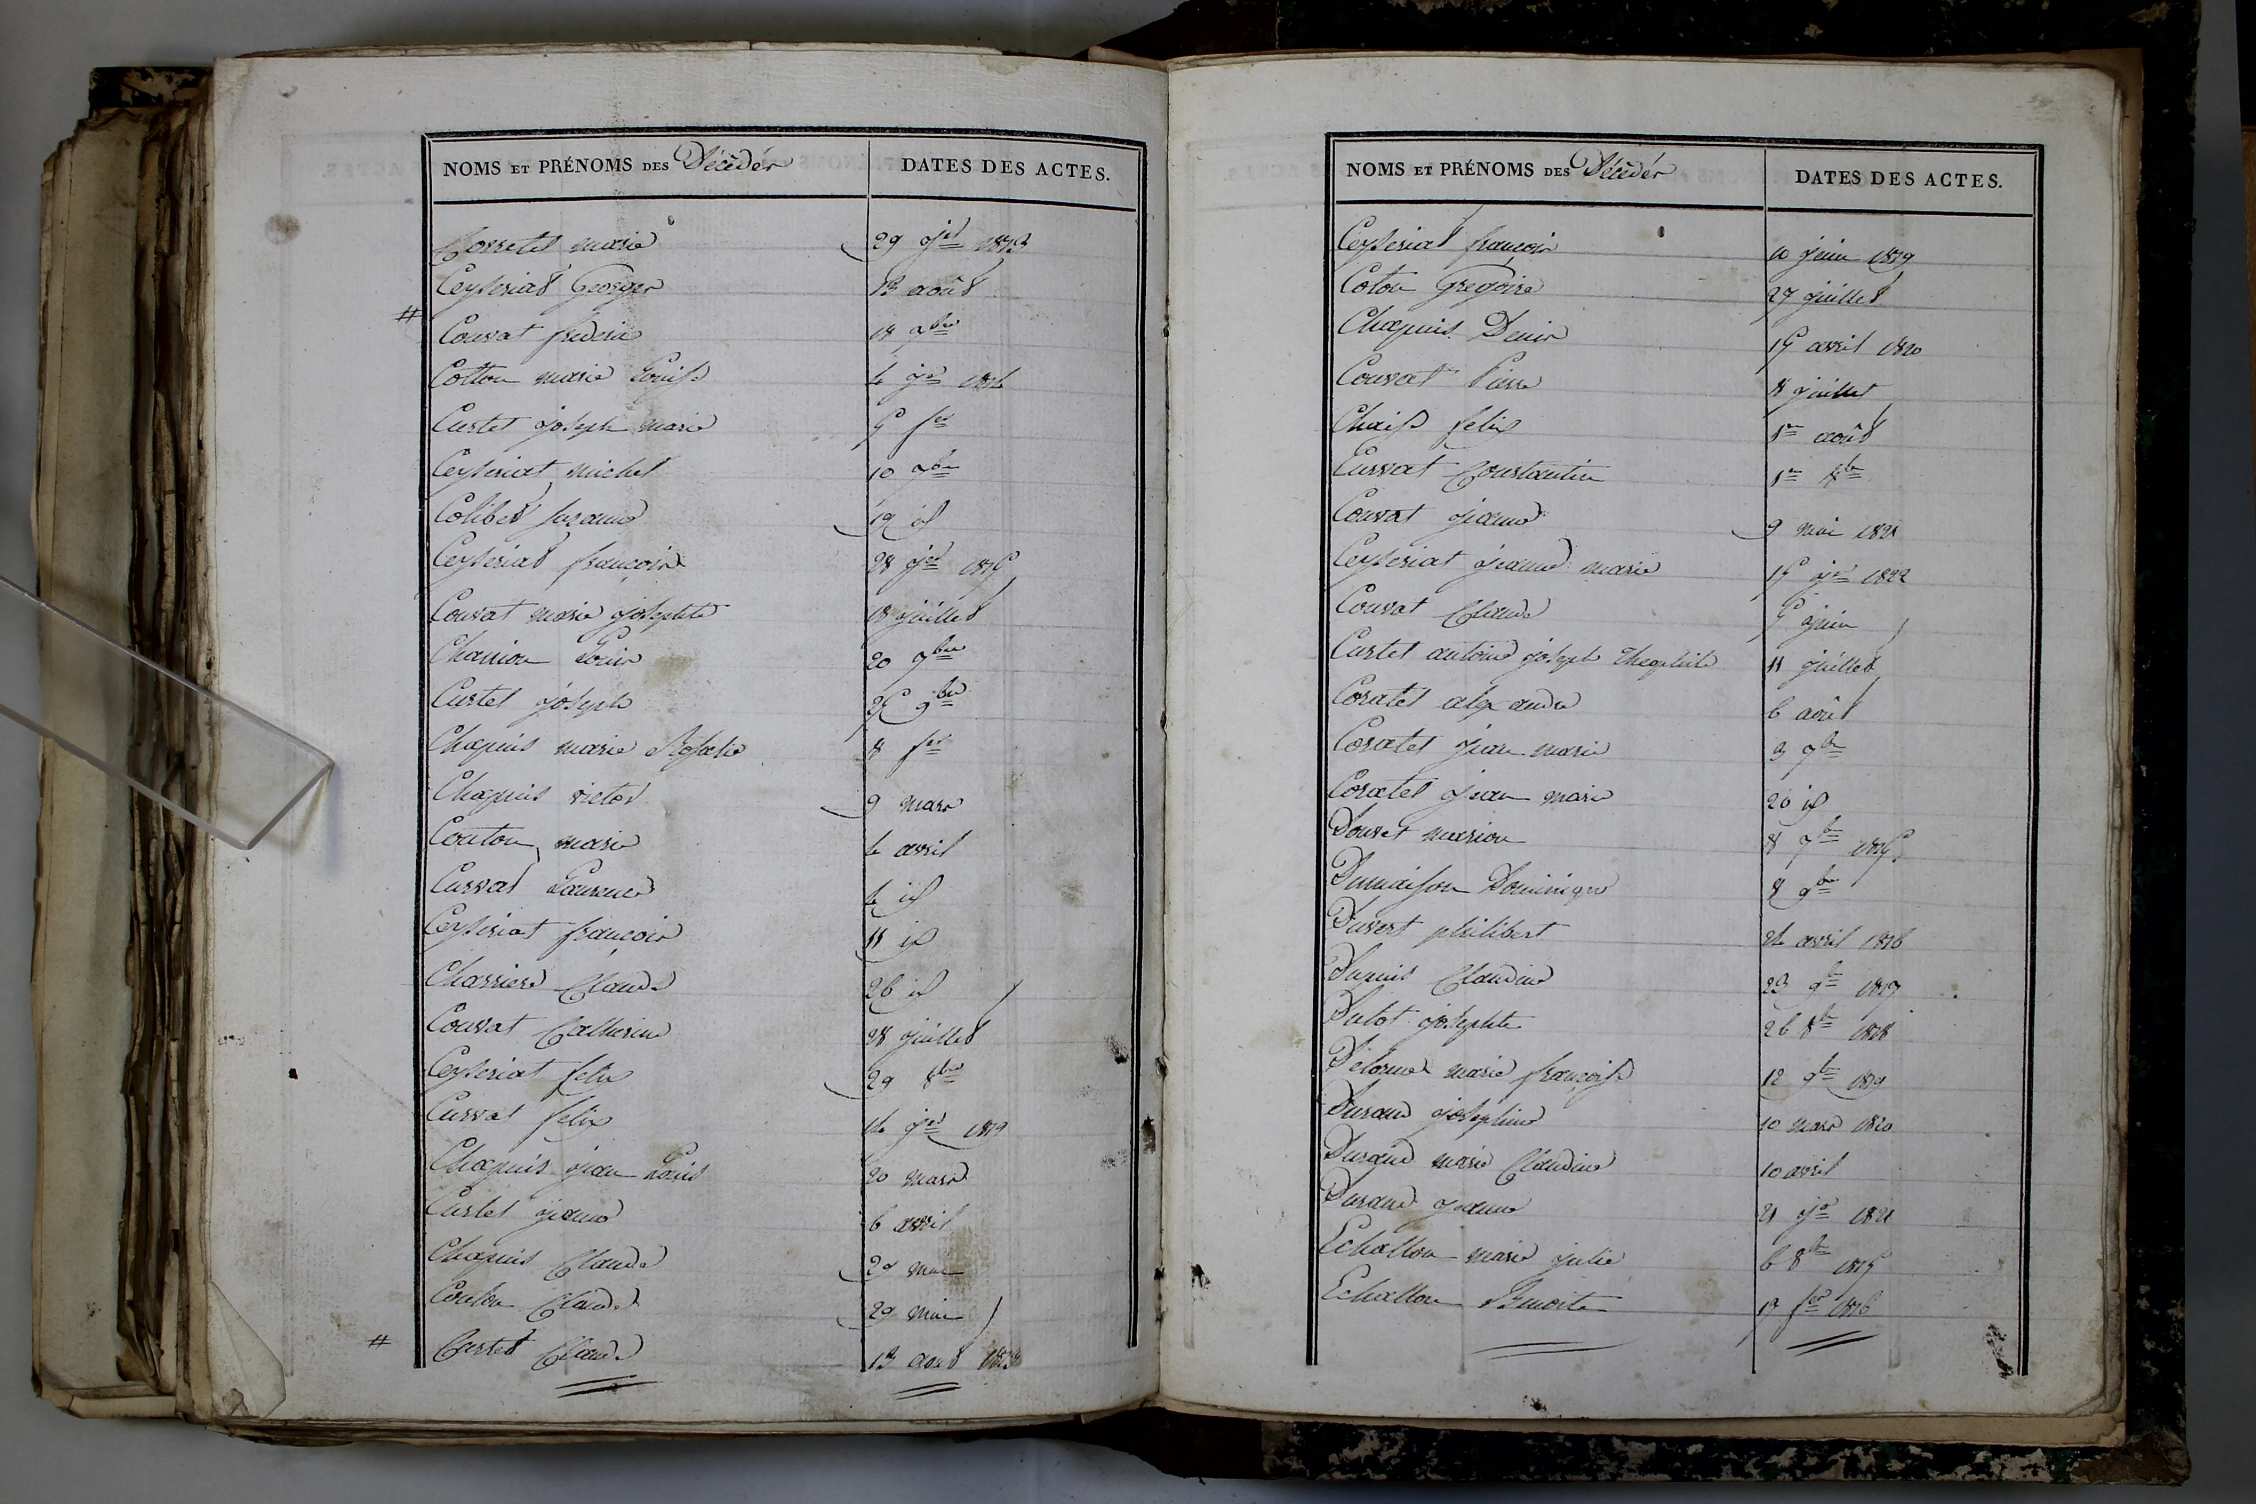 NOMS ET PRÉNOMS DES Décédés
DATES DES ACTES.
Corretet marie 29 jer 1813
Ceyseriat Georges 13 août
Couvat frederic 18 7bre
Cotton marie Louise 4 jer 1814
Curtet joseph marie 5 fer
Ceyseriat michel 10 7bre
Colibet suzanne 19 id
Ceyseriat françois 28 jer 1815
Couvat marie josephte 18 juillet
Chanion Louis 20 7bre
Curtet joseph 25 9bre
Chapuis marie Rosalie 8 fer
Chapuis victor 9 mars
Couton marie 4 avril
Curvat Laurence 4 id
Ceyseriat françois 11 id
Charriere Claude 26 id
Couvat Catherine 28 juillet
Ceyseriat felix 29 8bre
Curvat felix 14 jer 1819
Chapuis jean Louis 20 mars
Curtet jeanne 6 avril
Chapuis Claude 29 mai
Coulon Claude 29 mai
Curtet Claude 13 août
NOMS ET PRÉNOMS DES Décédés
DATES DES ACTES.
Ceyseriat françois 10 juin 1819
Coton Gregoire 27 juillet
Chapuis Denis 15 avril 1820
Couvat Pierre 8 juillet
Chaise felix 1er août
Curvat Constantin 1er Xbre
Couvat jeanne 9 mai 1821
Ceyseriat jeanne marie 15 jer 1822
Couvat Claude 5 juin
Curtet antoine joseph Theophile 11 juillet
Coratet alexandre 6 août
Coratet jean marie 3 7bre
Coratet jean marie 20 id
Douvet marion 8 7bre 1815
Dumaison Dominique 8 9bre
Duvert philibert 24 avril 1816
Dupuis Claudine 23 9bre 1817
Dutot josephte 26 8bre 1818
Delorme marie françoise 12 9bre 1819
Durand josephine 10 mars 1820
Durand marie Claudine 10 avril
Durand jeanne 21 jer 1821
Echallon marie julie 6 8bre 1815
Echallon Benoite 17 fer 1816